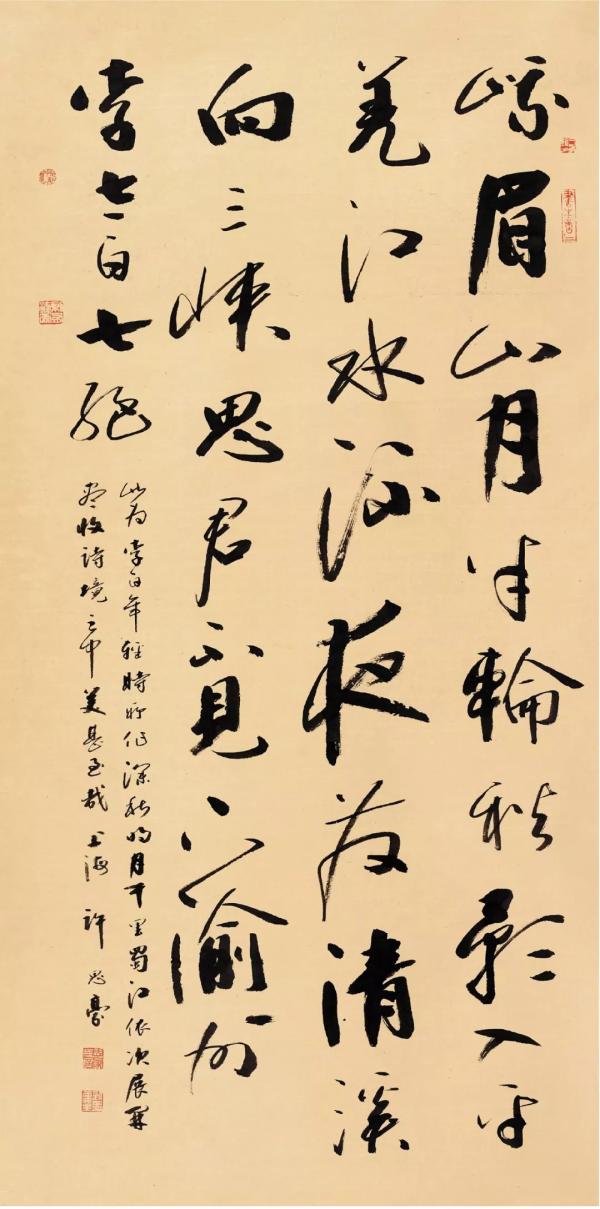 峨眉山月半輪秋影入平
羌江水流夜發清溪
向三峽思君不見下渝州
李太白七絕
此為李白年輕時所作深秋明月千里蜀江依次展開
盡收詩境之中美甚至哉 上海 許思豪